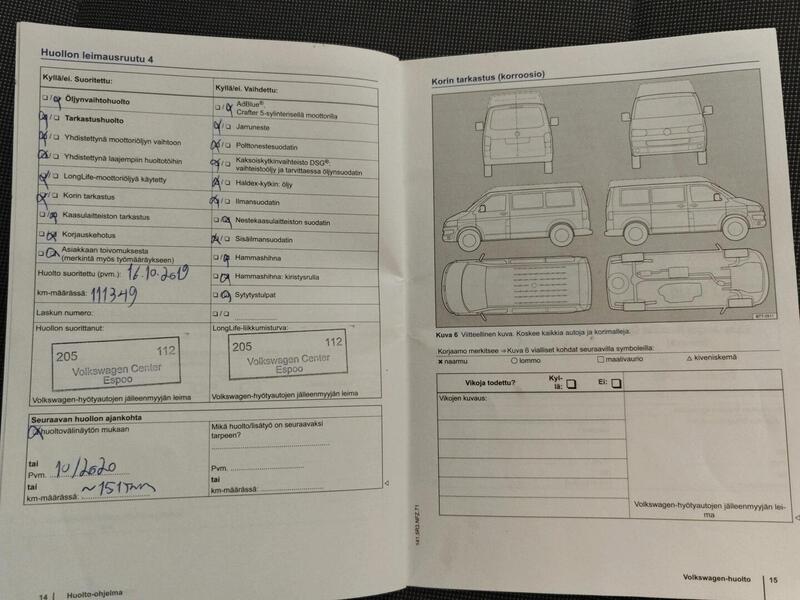 Huollon leimausruutu 4
Kyllä/ei. Suoritettu:
☐/☒ Öljynvaihtohuolto
☒/☐ Tarkastushuolto
☒/☐ Yhdistettynä moottoriöljyn vaihtoon
☒/☐ Yhdistettynä laajempiin huoltotöihin
☒/☐ LongLife-moottoriöljyä käytetty
☒/☐ Korin tarkastus
☐/☒ Kaasulaitteiston tarkastus
☐/☒ Korjauskehotus
☐/☒ Asiakkaan toivomuksesta
(merkintä myös työmääräykseen)
Huolto suoritettu (pvm.): 16.10.2019
km-määrässä: 111349
Laskun numero:
Huollon suorittanut:
205 112
Volkswagen Center
Espoo
Volkswagen-hyötyautojen jälleenmyyjän leima
Kyllä/ei. Vaihdettu:
☐/☒ AdBlue®:
Crafter 5-sylinterisellä moottorilla
☒/☐ Jarruneste
☒/☐ Polttonestesuodatin
☒/☐ Kaksoiskytkinvaihteisto DSG®:
vaihteistoöljy ja tarvittaessa öljynsuodatin
☒/☐ Haldex-kytkin: öljy
☒/☐ Ilmansuodatin
☐/☒ Nestekaasulaitteiston suodatin
☒/☐ Sisäilmansuodatin
☐/☒ Hammashihna
☐/☒ Hammashihna: kiristysrulla
☐/☒ Sytytystulpat
☐/☐
LongLife-liikkumisturva:
205 112
Volkswagen Center
Espoo
Volkswagen-hyötyautojen jälleenmyyjän leima
Seuraavan huollon ajankohta
☒ huoltovälinäytön mukaan
tai
Pvm. 10/2020
tai
km-määrässä: ~151Tkm
Mikä huolto/lisätyö on seuraavaksi
tarpeen?
Pvm.
tai
km-määrässä:
14 Huolto-ohjelma
Korin tarkastus (korroosio)
Kuva 6 Viitteellinen kuva. Koskee kaikkia autoja ja korimalleja.
Korjaamo merkitsee ⇒ Kuva 6 vialliset kohdat seuraavilla symboleilla:
✖ naarmu ○ lommo ☐ maalivaurio △ kiveniskemä
Vikoja todettu? Kyl-
lä: ☐ Ei: ☐
Vikojen kuvaus:
Volkswagen-hyötyautojen jälleenmyyjän lei-
ma
141.5R3.NFZ.71
Volkswagen-huolto 15